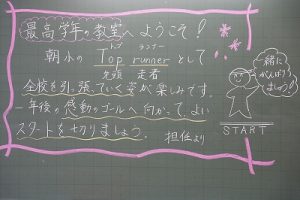 最高学年の教室へようこそ!
トップ ランナー
朝小の Top runnerとして
先頭 走者
全校を引っ張っていく姿が楽しみです。
一年後の感動のゴールへ向かって、よい
スタートを切りましょう。 担任より
一緒に
がんばり
ましょう!
START